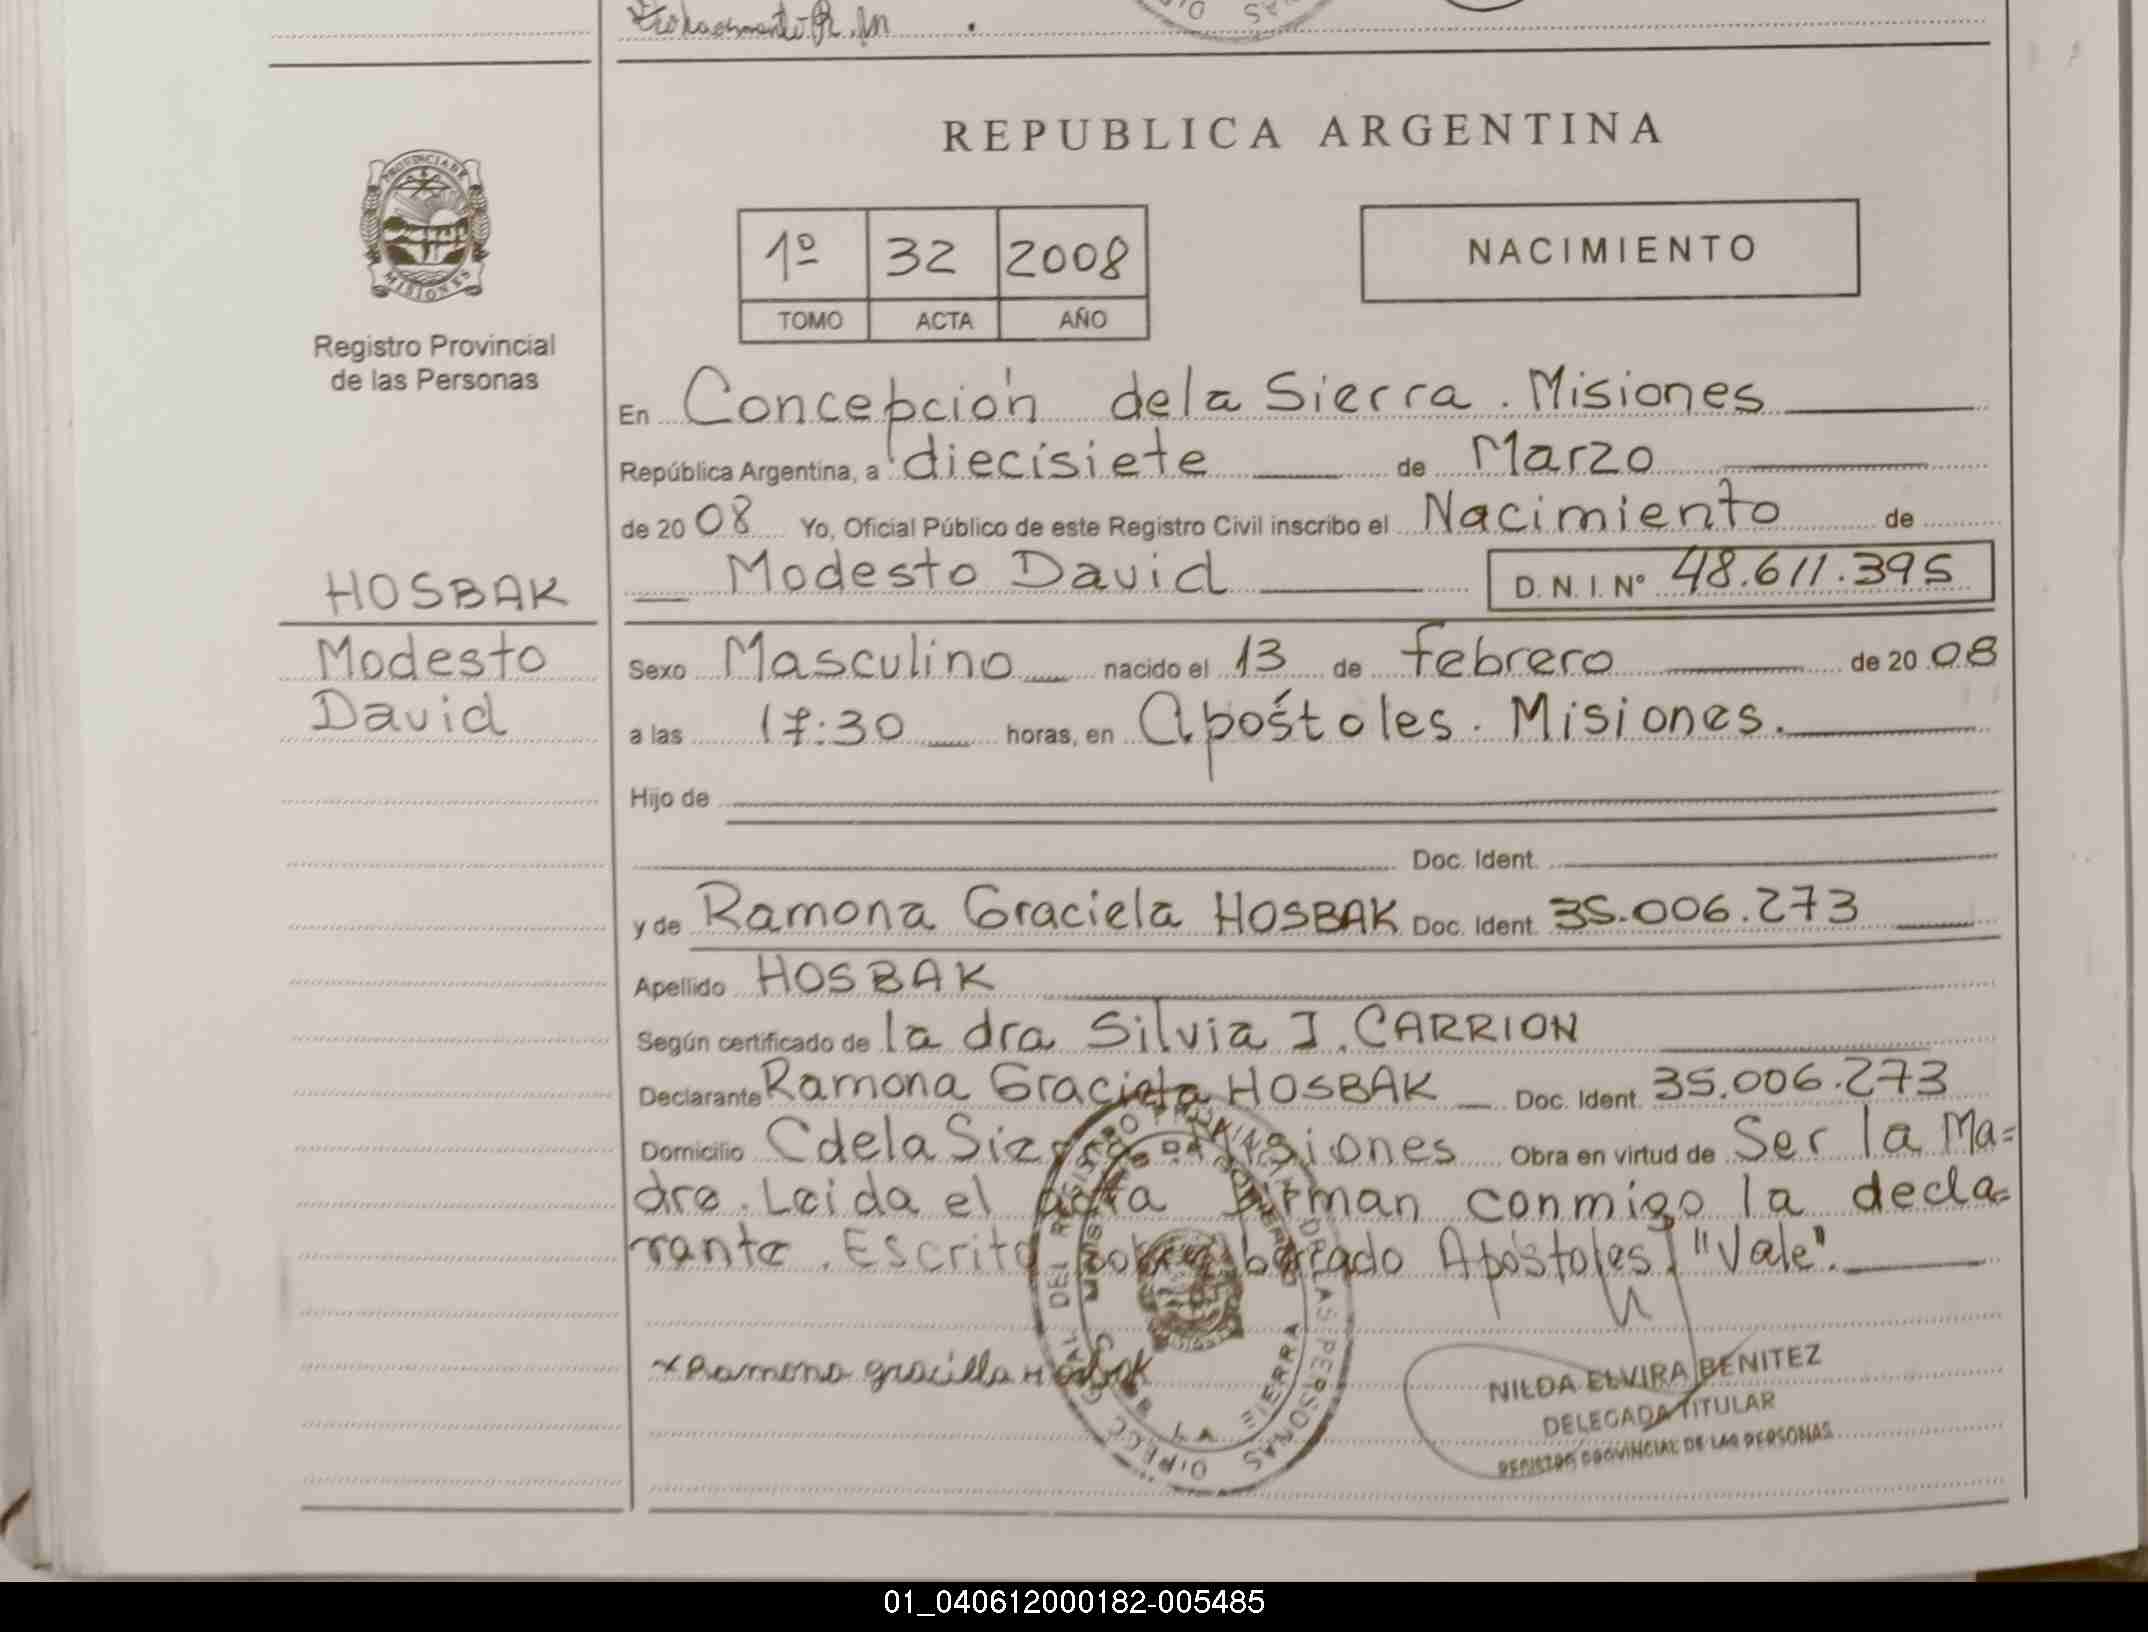 REPUBLICA ARGENTINA
PROVINCIA DE
MISIONES
Registro Provincial
de las Personas
1º 32 2008
TOMO ACTA AÑO
NACIMIENTO
En Concepción de la Sierra. Misiones
República Argentina, a diecisiete de Marzo
de 20 08 Yo, Oficial Público de este Registro Civil inscribo el Nacimiento de
Modesto David D.N.I. Nº 48.611.395
HOSBAK
Modesto
David
Sexo Masculino nacido el 13 de febrero de 20 08
a las 17:30 horas, en Apóstoles. Misiones.
Hijo de
Doc. Ident.
y de Ramona Graciela HOSBAK Doc. Ident. 35.006.273
Apellido HOSBAK
Según certificado de la dra Silvia I. CARRION
Declarante Ramona Graciela HOSBAK Doc. Ident. 35.006.273
Domicilio C de la Sierra Misiones Obra en virtud de Ser la Ma=
dre. Leida el acta firman conmigo la decla=
rante. Escrito sobre borrado Apóstoles. "Vale".
x Ramona gracilla Hosbak
NILDA ELVIRA BENITEZ
DELEGADA TITULAR
REGISTRO PROVINCIAL DE LAS PERSONAS
01_040612000182-005485